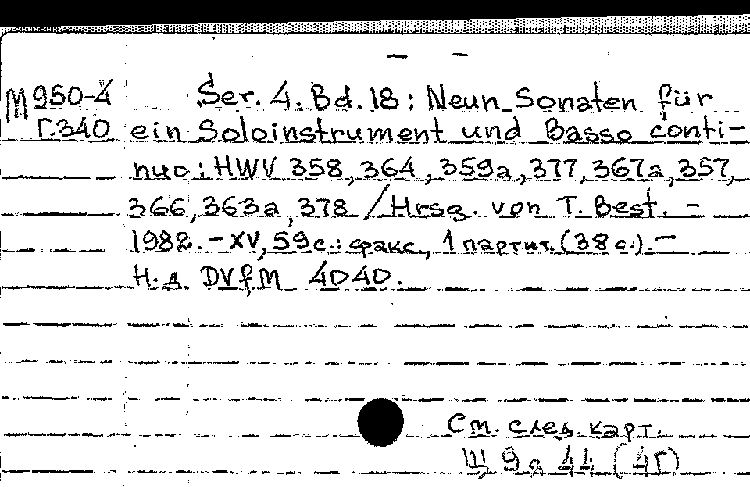 М950-4 Ser. 4. Bd. 18: Neun Sonaten für
Г.340 ein Soloinstrument und Basso conti-
nuo: HWV 358, 364, 359a, 377, 367a, 357,
366, 363a, 378 / Hrsg. von T. Best. -
1982. - XV, 59 с.: факс., 1 партит. (38 с.). -
Н. д. DVfM 4040.
См. след. карт.
Щ 9 44 (4Г)